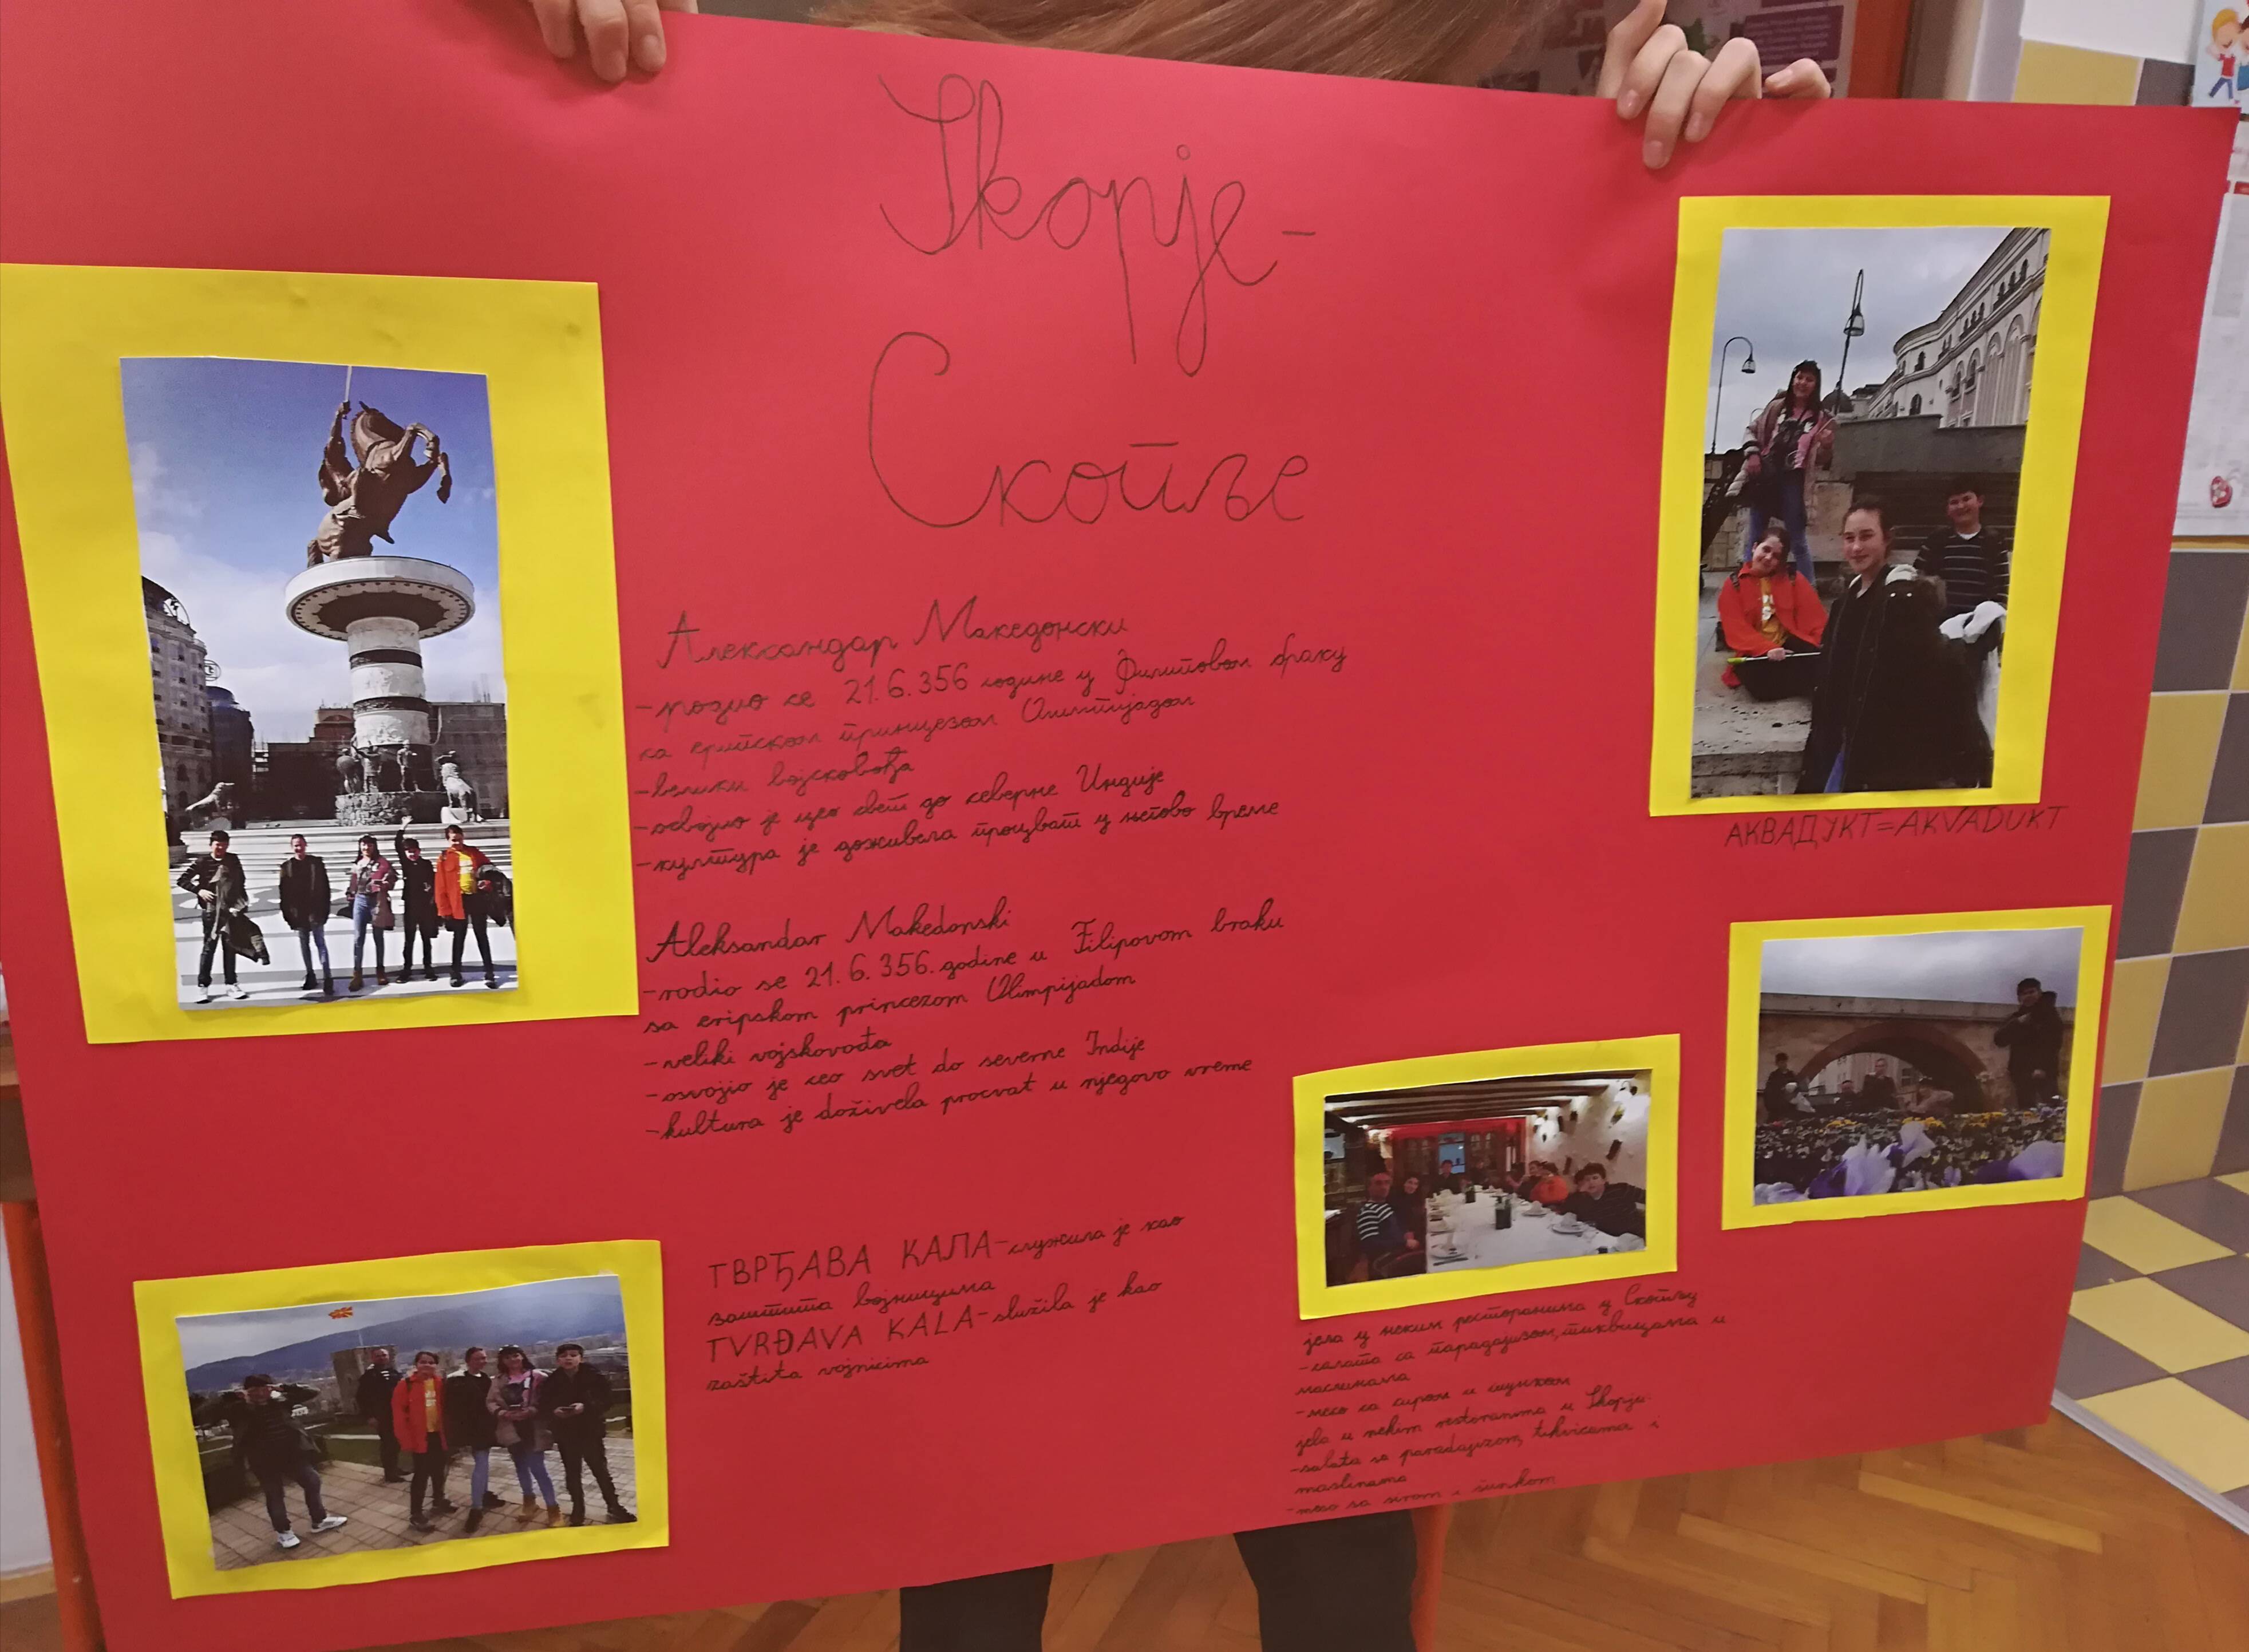 Skopje-
Скопље
Александар Македонски
-родио се 21.6.356 године у Филиповом браку
са ерипском принцезом Олимпијадом
-велики војсковођа
-освојио је цео свет до северне Индије
-култура је доживела процват у његово време
Aleksandar Makedonski
-rodio se 21.6.356. godine u Filipovom braku
sa eripskom princezom Olimpijadom
-veliki vojskovođa
-osvojio je ceo svet do severne Indije
-kultura je doživela procvat u njegovo vreme
ТВРЂАВА КАЛА-служила је као
заштита војницима
TVRĐAVA KALA-služila je kao
zaštita vojnicima
АКВАДУКТ=AKVADUKT
јела у неким ресторанима у Скопљу
-салата са парадајзом, тиквицама и
маслинама
-месо са сиром и шунком
jela u nekim restoranima u Skopju
-salata sa paradajzom, tikvicama i
maslinama
-meso sa sirom i šunkom